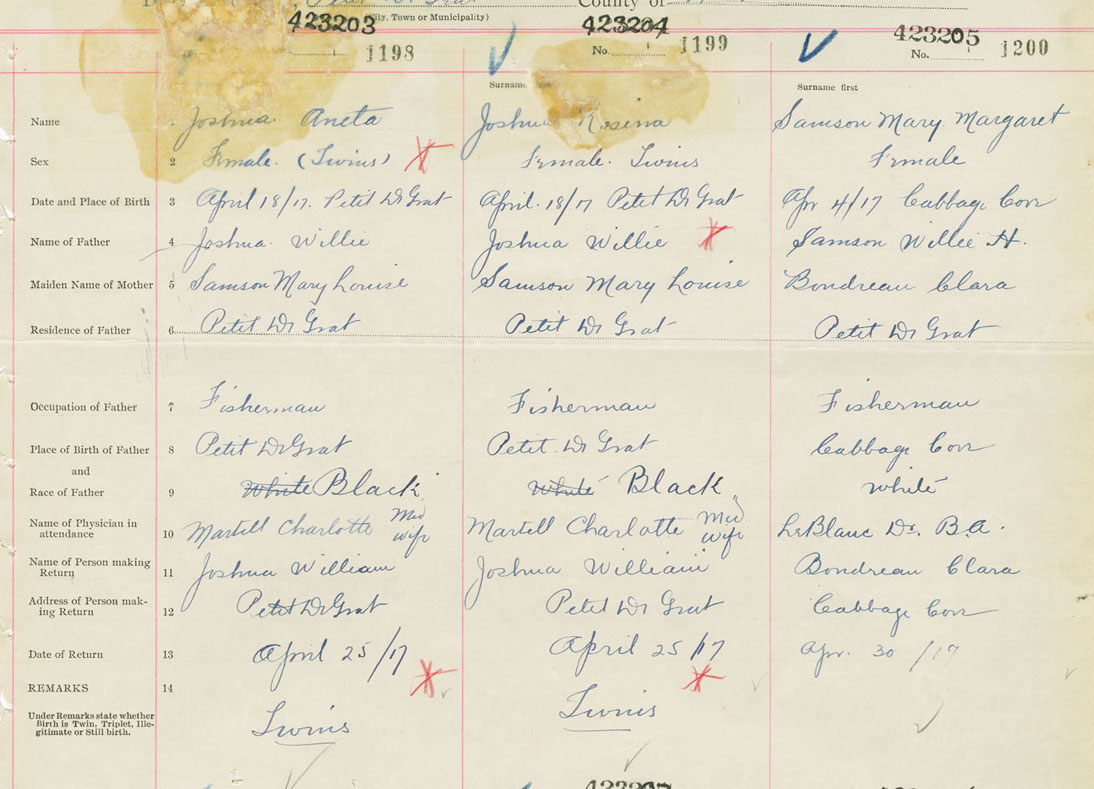 County of
(City, Town or Municipality)
423203 423204 423205
1198 No. 1199 No. 1200
Surname Surname first
Name Joshua Aneta Joshua Rosina Samson Mary Margaret
Sex 2 Female. (Twins) Female. Twins Female
Date and Place of Birth 3 April 18/17. Petit De Grat April. 18/17 Petit De Grat Apr 4/17 Cabbage Cove
Name of Father 4 Joshua. Willie Joshua Willie Samson Willie H.
Maiden Name of Mother 5 Samson Mary Louise Samson Mary Louise Boudreau Clara
Residence of Father 6 Petit De Grat Petit De Grat Petit De Grat
Occupation of Father 7 Fisherman Fisherman Fisherman
Place of Birth of Father 8 Petit De Grat Petit De Grat Cabbage Cove
and
Race of Father 9 White Black White Black White
Name of Physician in
attendance 10 Martell Charlotte Mid wife Martell Charlotte Mid wife LeBlanc Dr. B.A.
Name of Person making
Return 11 Joshua William Joshua William Boudreau Clara
Address of Person mak-
ing Return 12 Petit De Grat Petit De Grat Cabbage Cove
Date of Return 13 April 25/17 April 25/17 Apr. 30/17
REMARKS 14
Under Remarks state whether
Birth is Twin, Triplet, Ille-
gitimate or Still birth.
Twins Twins